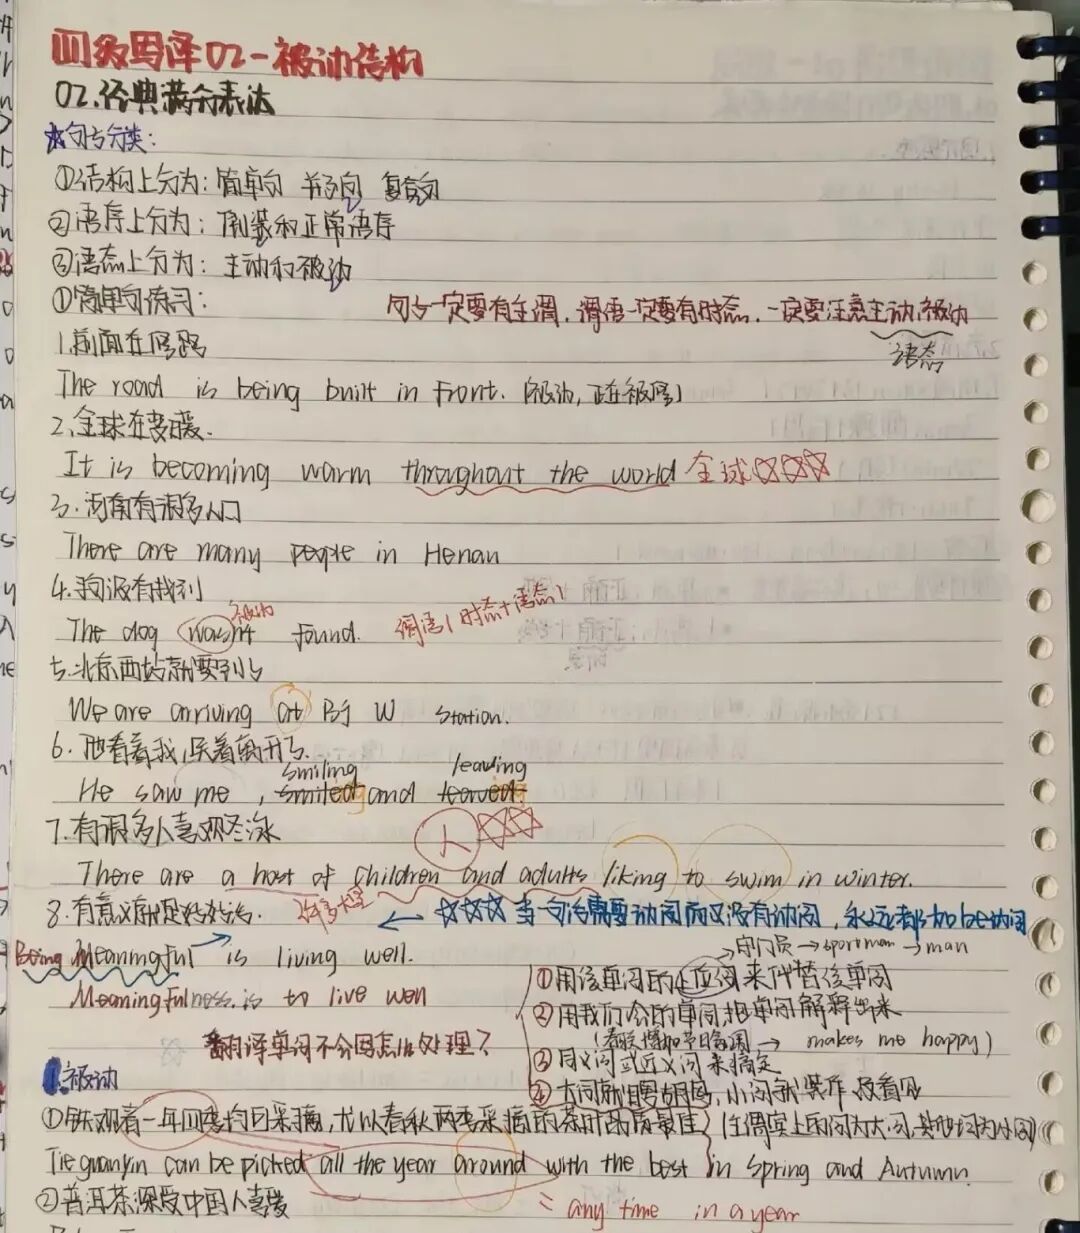 四级写译02-被动结构
02.经典满分表达
☆句子分类:
①结构上分为:简单句 并列句 复合句
②语序上分为:倒装和正常语序
③语态上分为:主动和被动
①简单句练习:
句子一定要有主谓,谓语一定要有时态,一定要注意主动、被动
语态
1.前面在修路
The road is being built in front. (被动,正在被修)
2.全球在变暖.
It is becoming warm throughout the world 全球☆☆☆
3.河南有很多人口
There are many people in Henan
4.狗没有找到
被动
The dog wasn't found. 谓语(时态+语态)
5.北京西站就要到了
We are arriving at Bj W station.
6.他看着我,笑着离开了.
smiling leaving
He saw me , smiled and leaved.
7.有很多人喜欢冬泳
人☆☆☆
There are a host of children and adults liking to swim in winter.
8.有意义就是好好活. 许多大量 ← ☆☆☆ 当一句话需要动词而又没有动词,永远都加be动词
Being Meaningful → is living well.
守门员→sportman→man
①用该单词的上位词来代替该单词
Meaningfulness is to live well
②用我们会的单词,把单词解释出来
→ makes me happy)
翻译单词不会写怎么处理?
③同义词或近义词来搞定
④大词就瞎胡写,小词就装作没看见
1.被动
①铁观音一年四季均可采摘,尤以春秋两季采摘的茶叶品质最佳
Tie guanyin can be picked all the year around with the best in Spring and Autumn.
②普洱茶深受中国人喜爱
= any time in a year